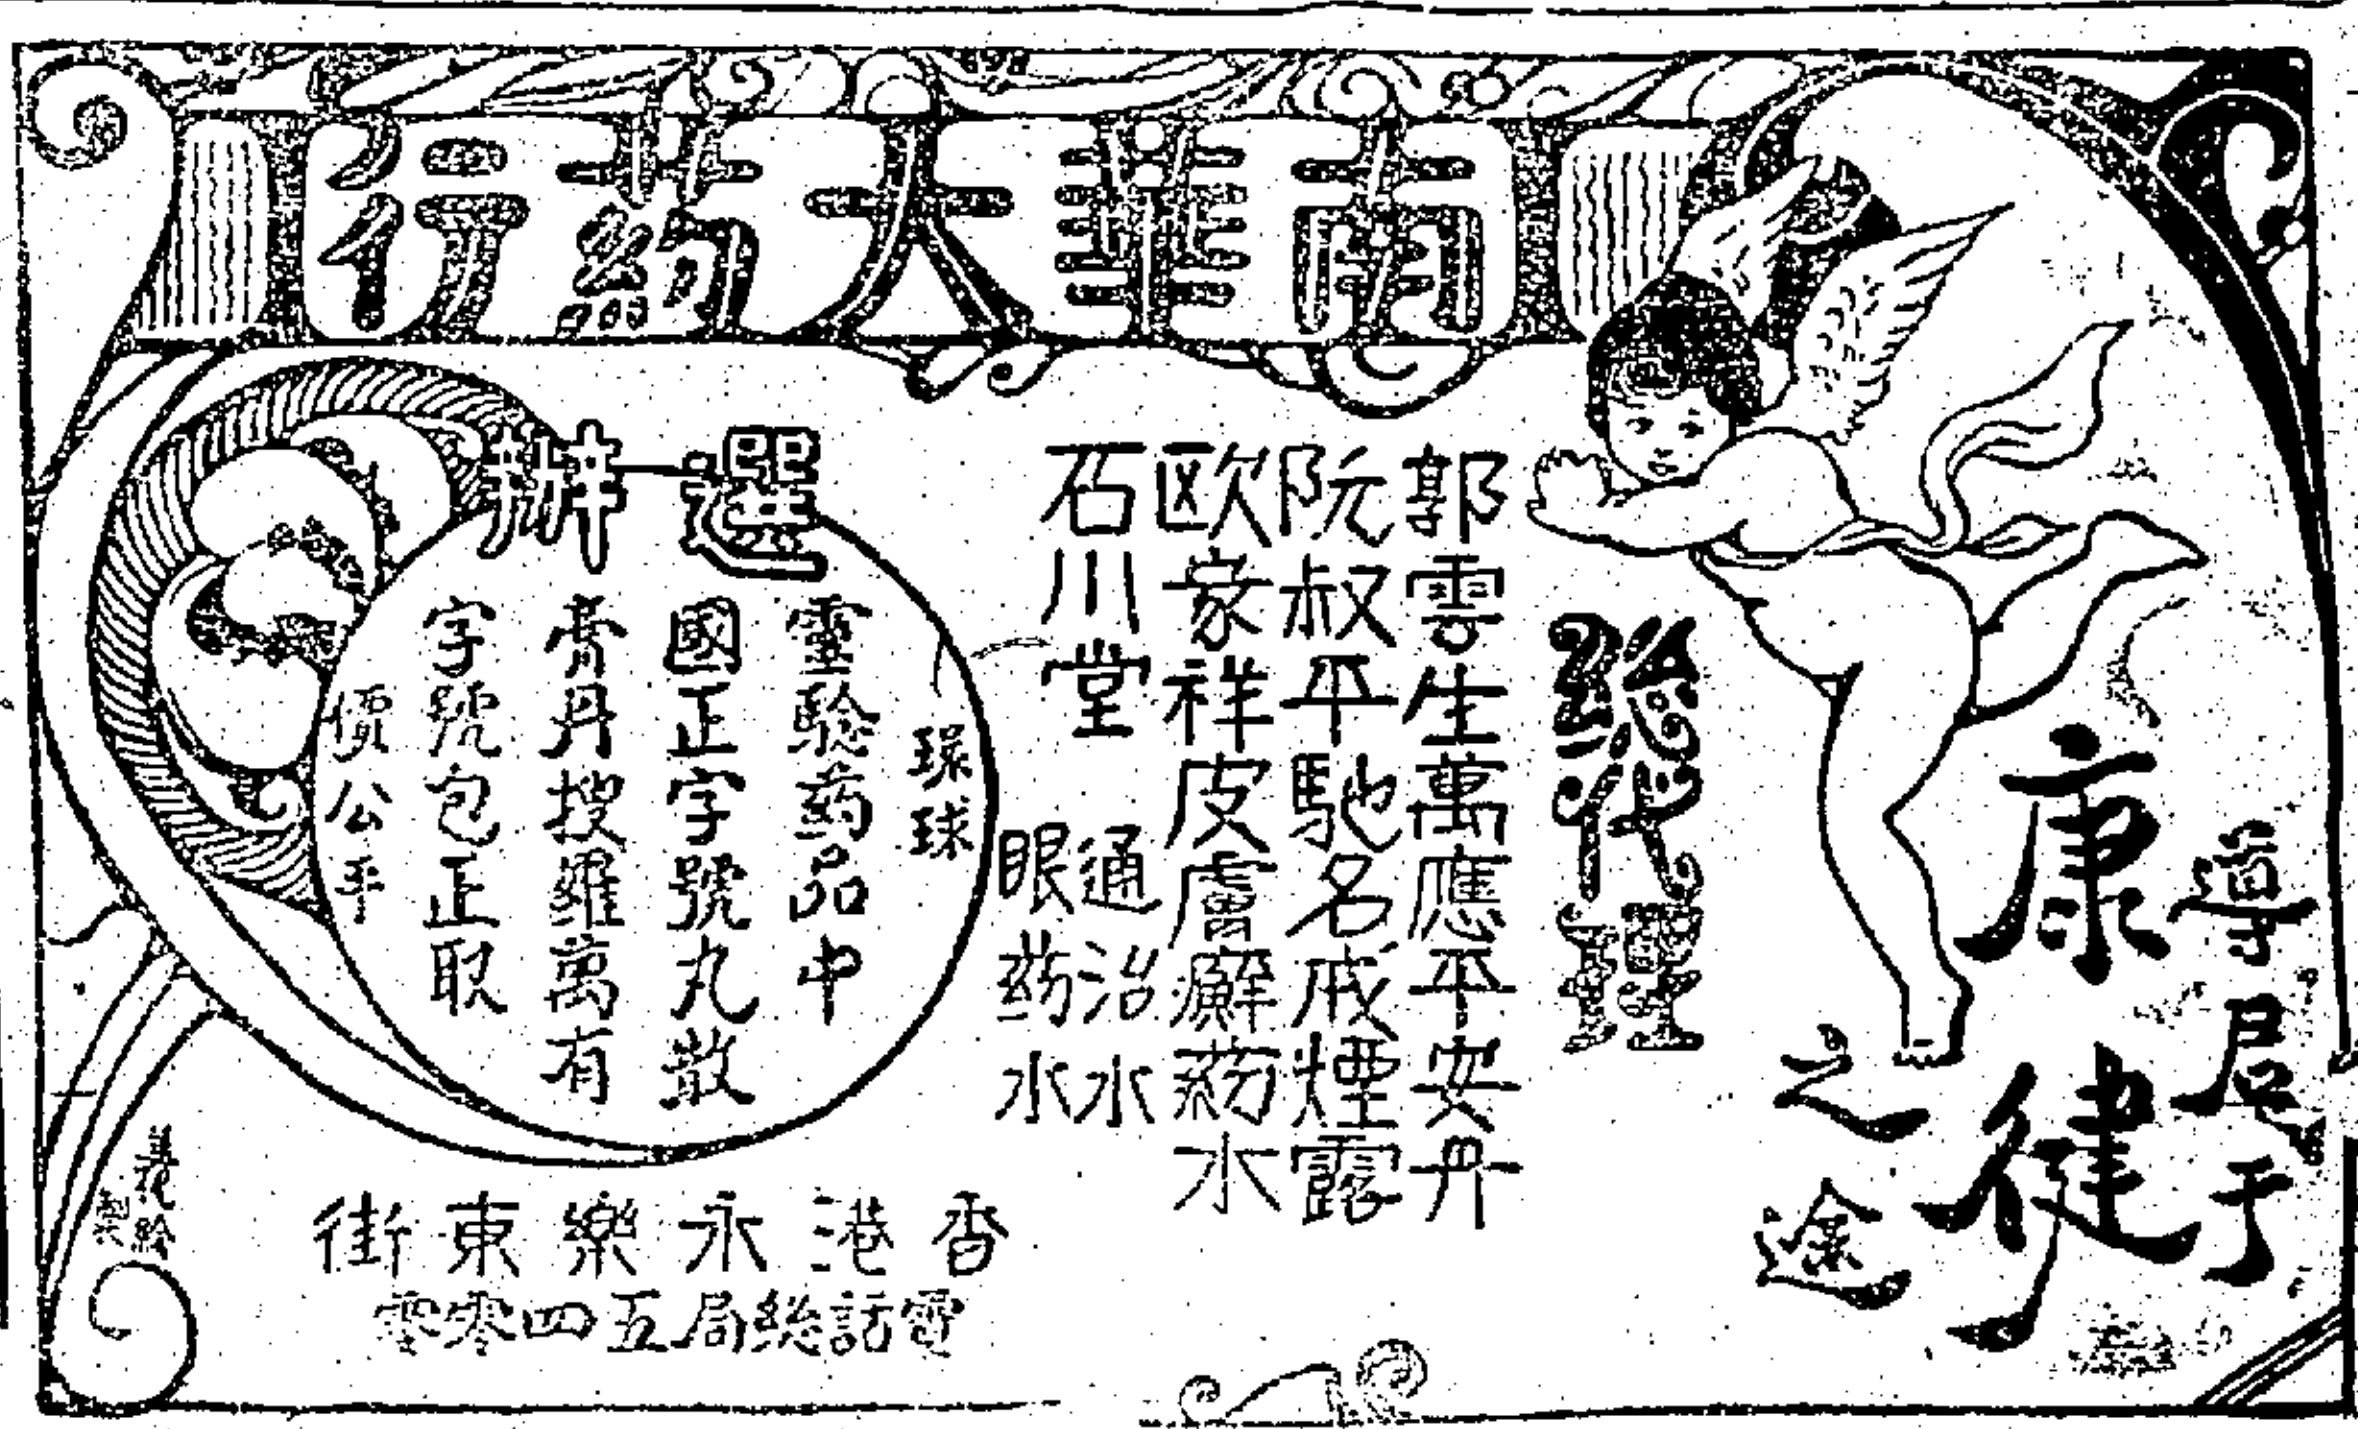 南華大药行
導君于
康健
之途
総代理
郭雲生萬應平安丹
阮叔平馳名戒煙露
欧家祥皮膚癬药水
石川堂
通治水
眼药水
選辦
環球
靈驗药品中
國正字號丸散
膏丹搜羅萬有
字號包正取
價公平
香港永樂東街
電話総局五四零零